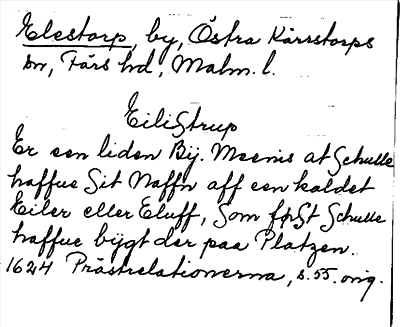 Elestorp, by, Östra Kärrstorps
sn, Färs hd, Malm. l.
EiliStrup
Er een liden Bÿ. Meenis at Schulle
haffue Sit Naffn aff een kaldet
Eiler eller Eluff, Som førSt Schulle
haffue bÿgt der paa Platzen.
1624 Prästrelationerna, s. 55. orig.